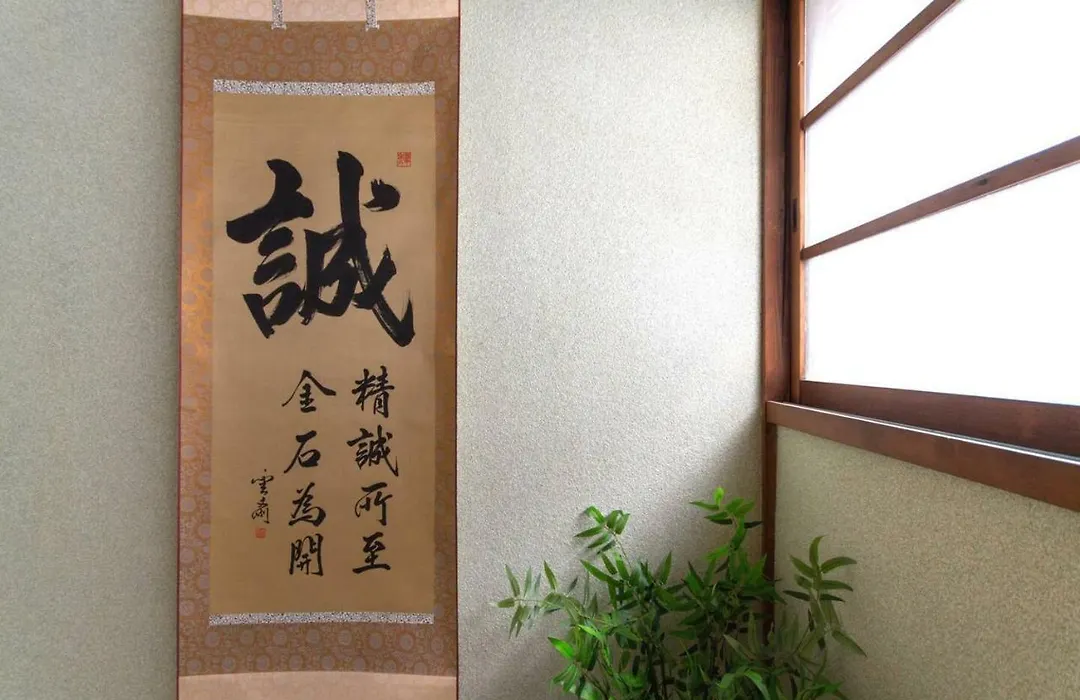 誠
精誠所至
金石為開